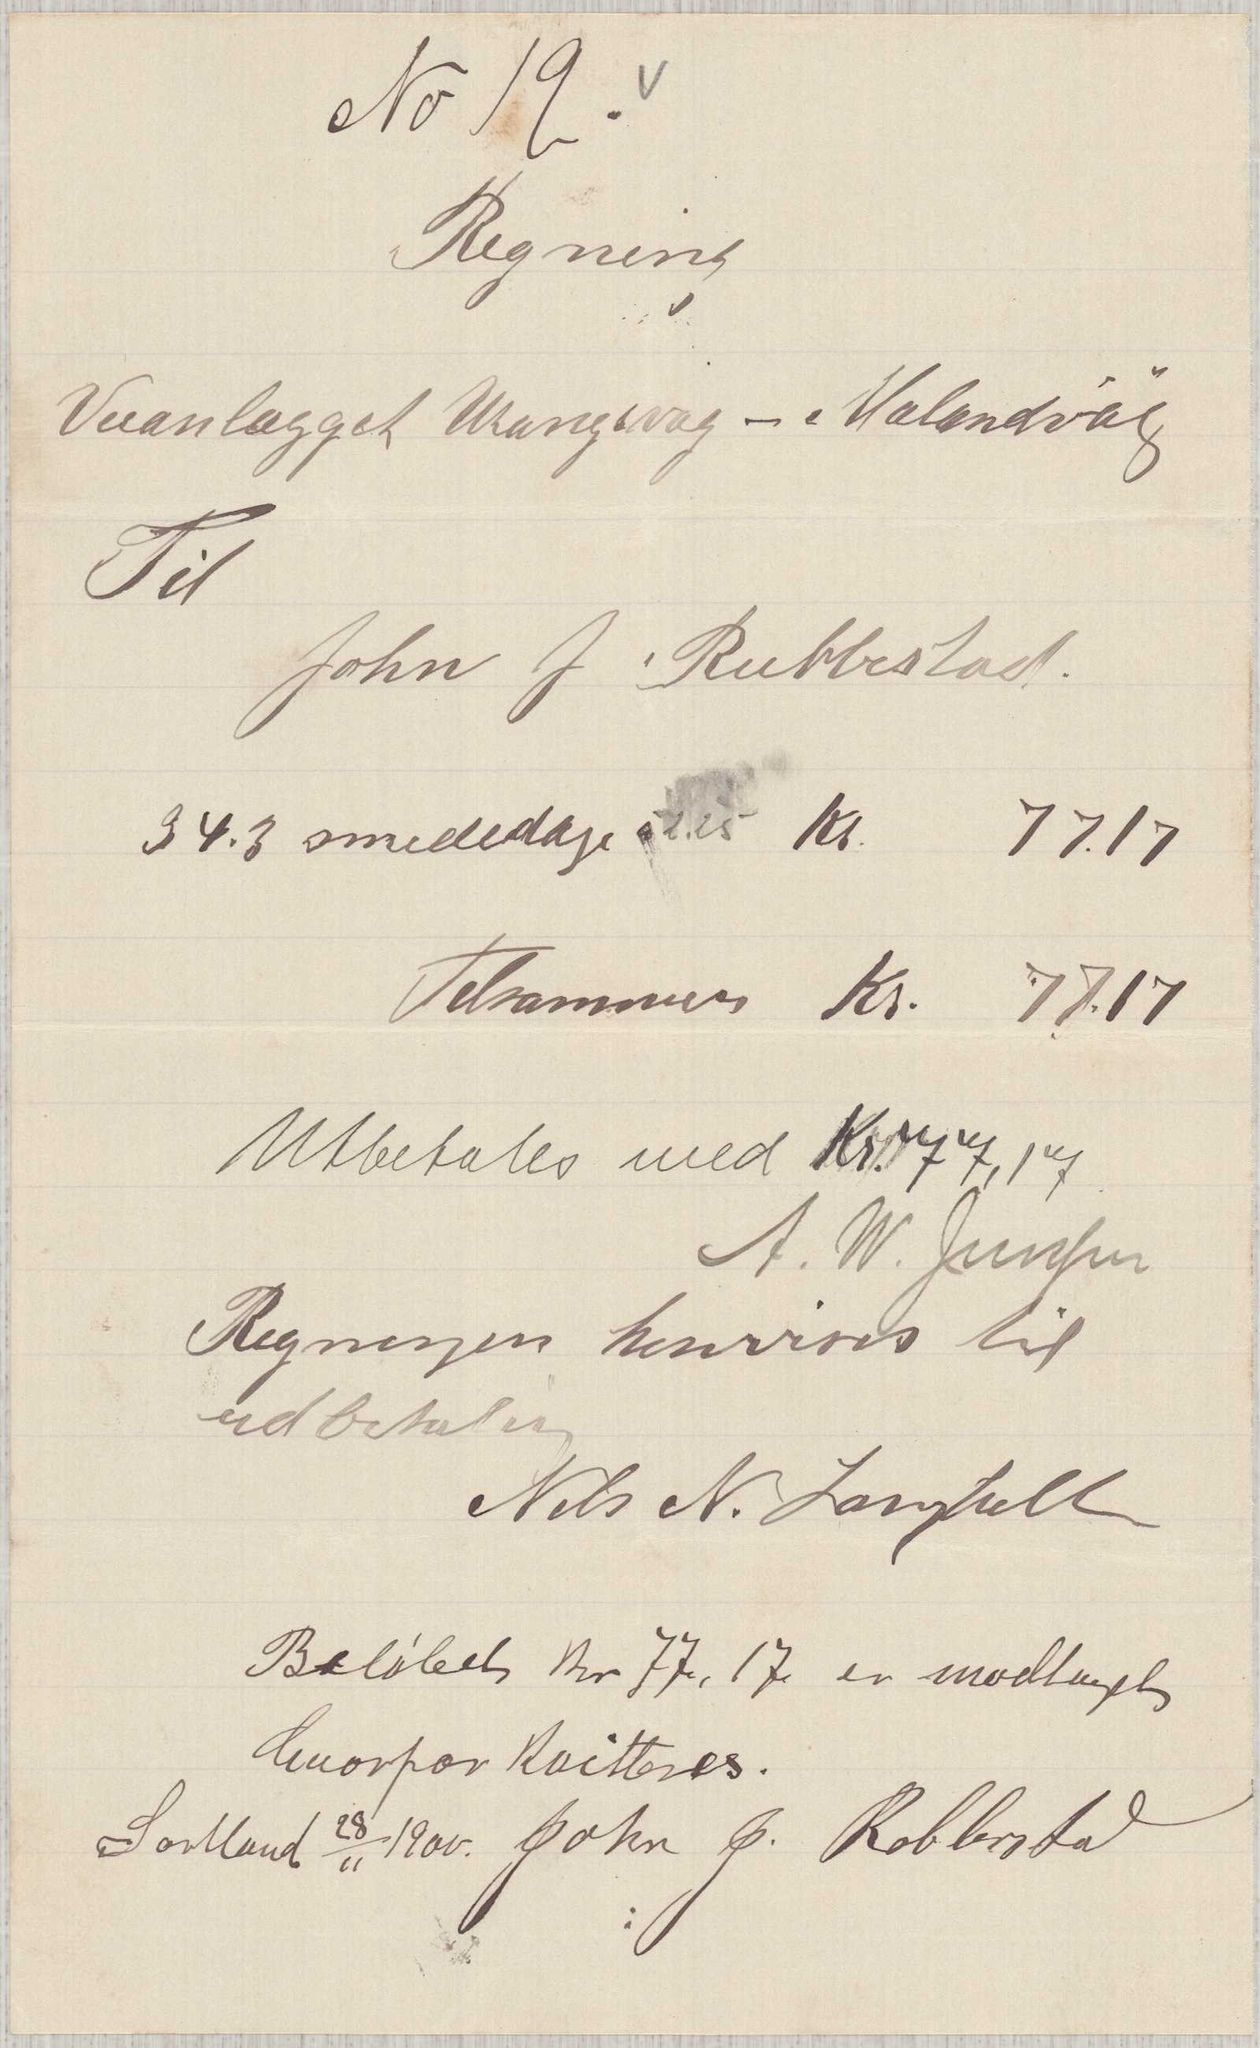 No 12.
Regning
Veianlægget Urangsvag - Halandväg
Til
John J Rubbestad.
34.3 smededage a 2.25 Kr. 77.17
Tilsammen Kr. 77.17
Utbetales med Kr. 77,17
A. W.
Regningen henvises til
udbetaling
Nils N.
Beløbet Kr 77,17 er modtaget
hvorfor kvitteres.
28/11 1900. John J. Robberstad